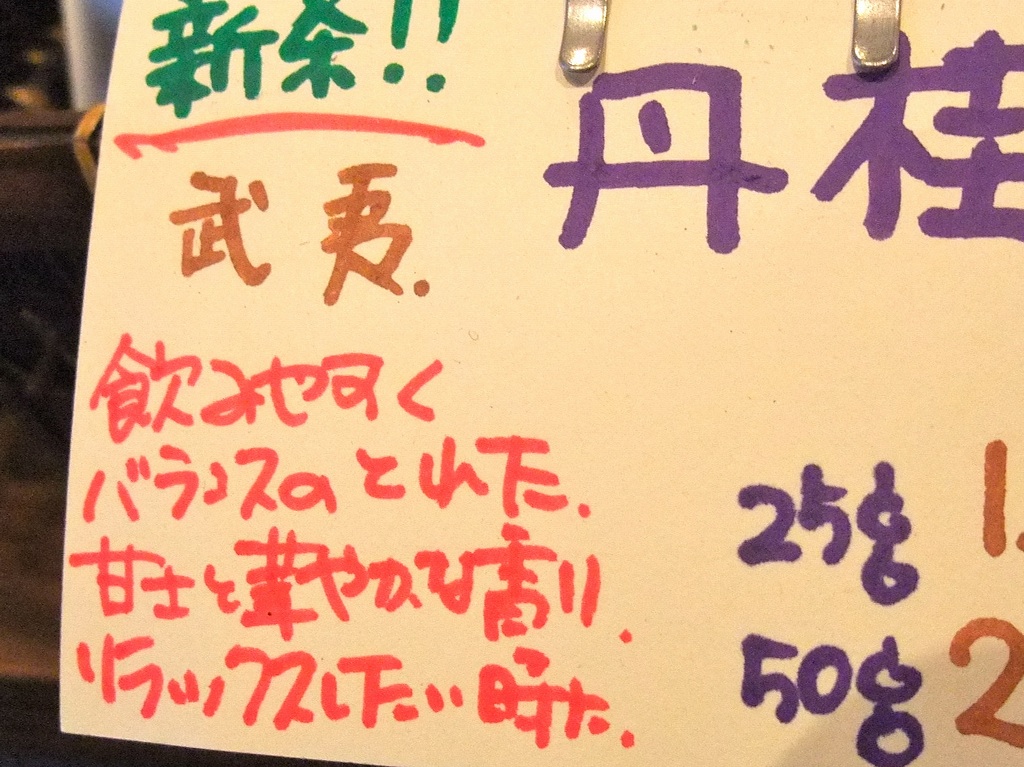 新茶!!
丹桂
武夷.
飲みやすく
バランスのとれた.
甘さと華やかな香り.
リラックスしたい時に.
25g 1.
50g 2